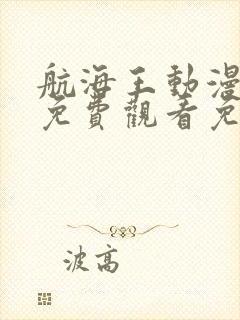 航海王動漫
免費觀看免
波高